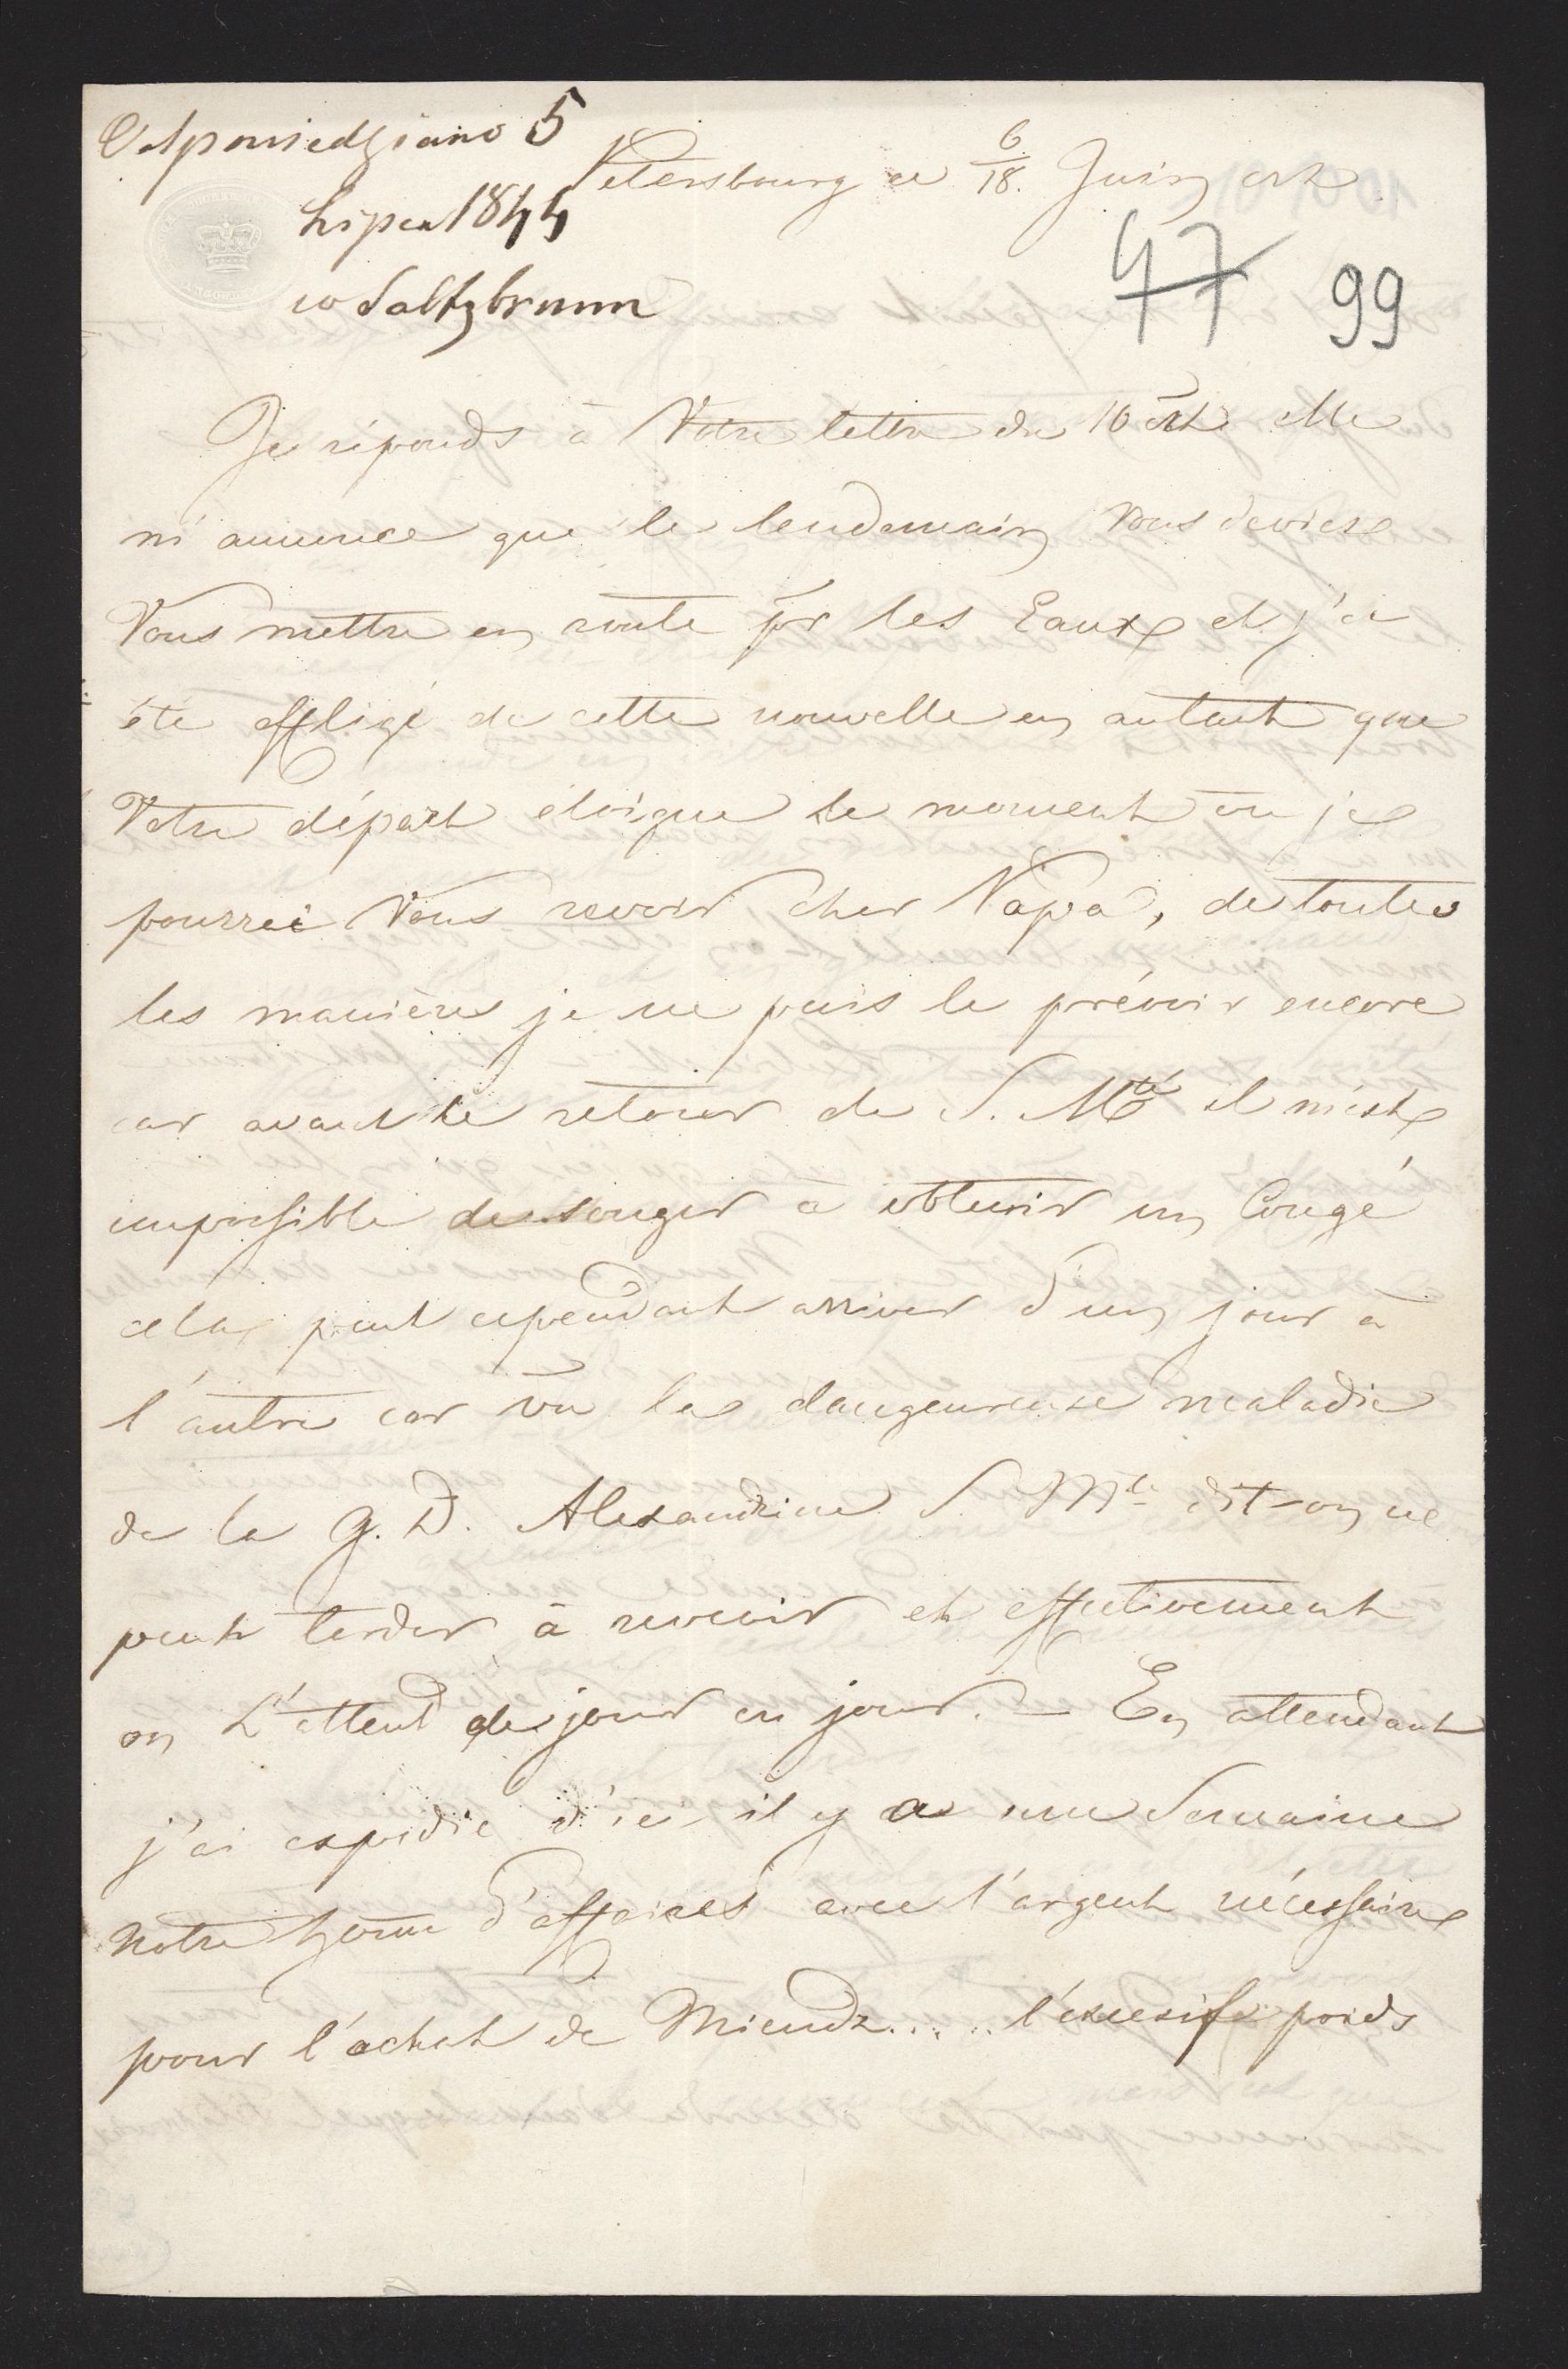 Odpowiedziano 5
Lipca 1844
w Saltzbrunn
Petersbourg ce 6/18. Juin crt
47 99
Je réponds à Votre lettre du 10 crt elle
m'annonce que le lendemain Vous deviez
Vous mettre en route pr les Eaux et j'ai
été affligé de cette nouvelle en autant que
Votre départ éloigne le moment où je
pourrai Vous revoir cher Papa, de toutes
les manières je ne puis le prévoir encore
car avant le retour de S. Mté il m'est
impossible de songer à obtenir un Congé
cela peut cependant arriver d'un jour à
l'autre car vu la dangeureuse maladie
de la G. D. Alexandrine S. Mté dit-on ne
peut tarder à revenir et effectivement
on L'attend de jour en jour. – En attendant
j'ai expédié d'ici il y a une Semaine
notre home d'affaires avec l'argent nécessaire
pour l'achat de Miendz..... l'excesife poids